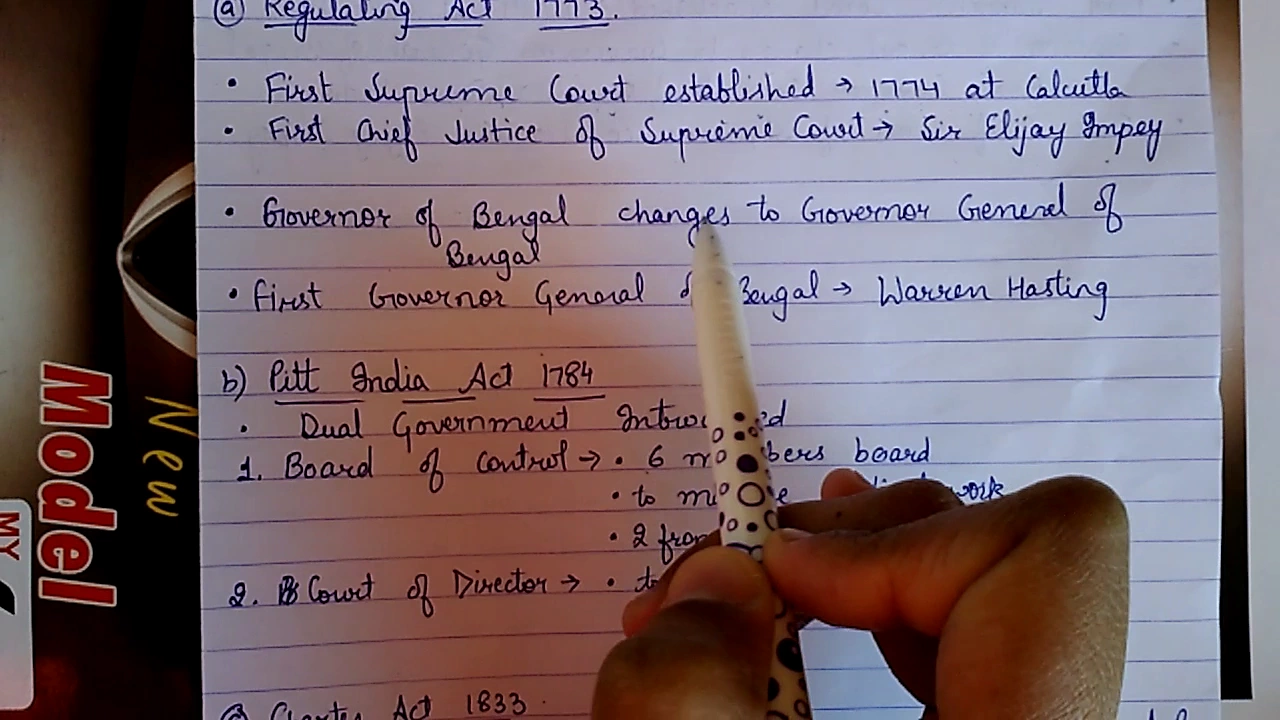 (a) Regulating Act 1773.
• First Supreme Court established → 1774 at Calcutta
• First Chief Justice of Supreme Court → Sir Elijay Impey
• Governor of Bengal changes to Governor General of
Bengal
• First Governor General Bengal → Warren Hasting
b) Pitt India Act 1784
• Dual Government
1. Board of Control → • 6 board
• to work
• 2
2. Court of Director → •
Charter Act 1833
New
Model
MY